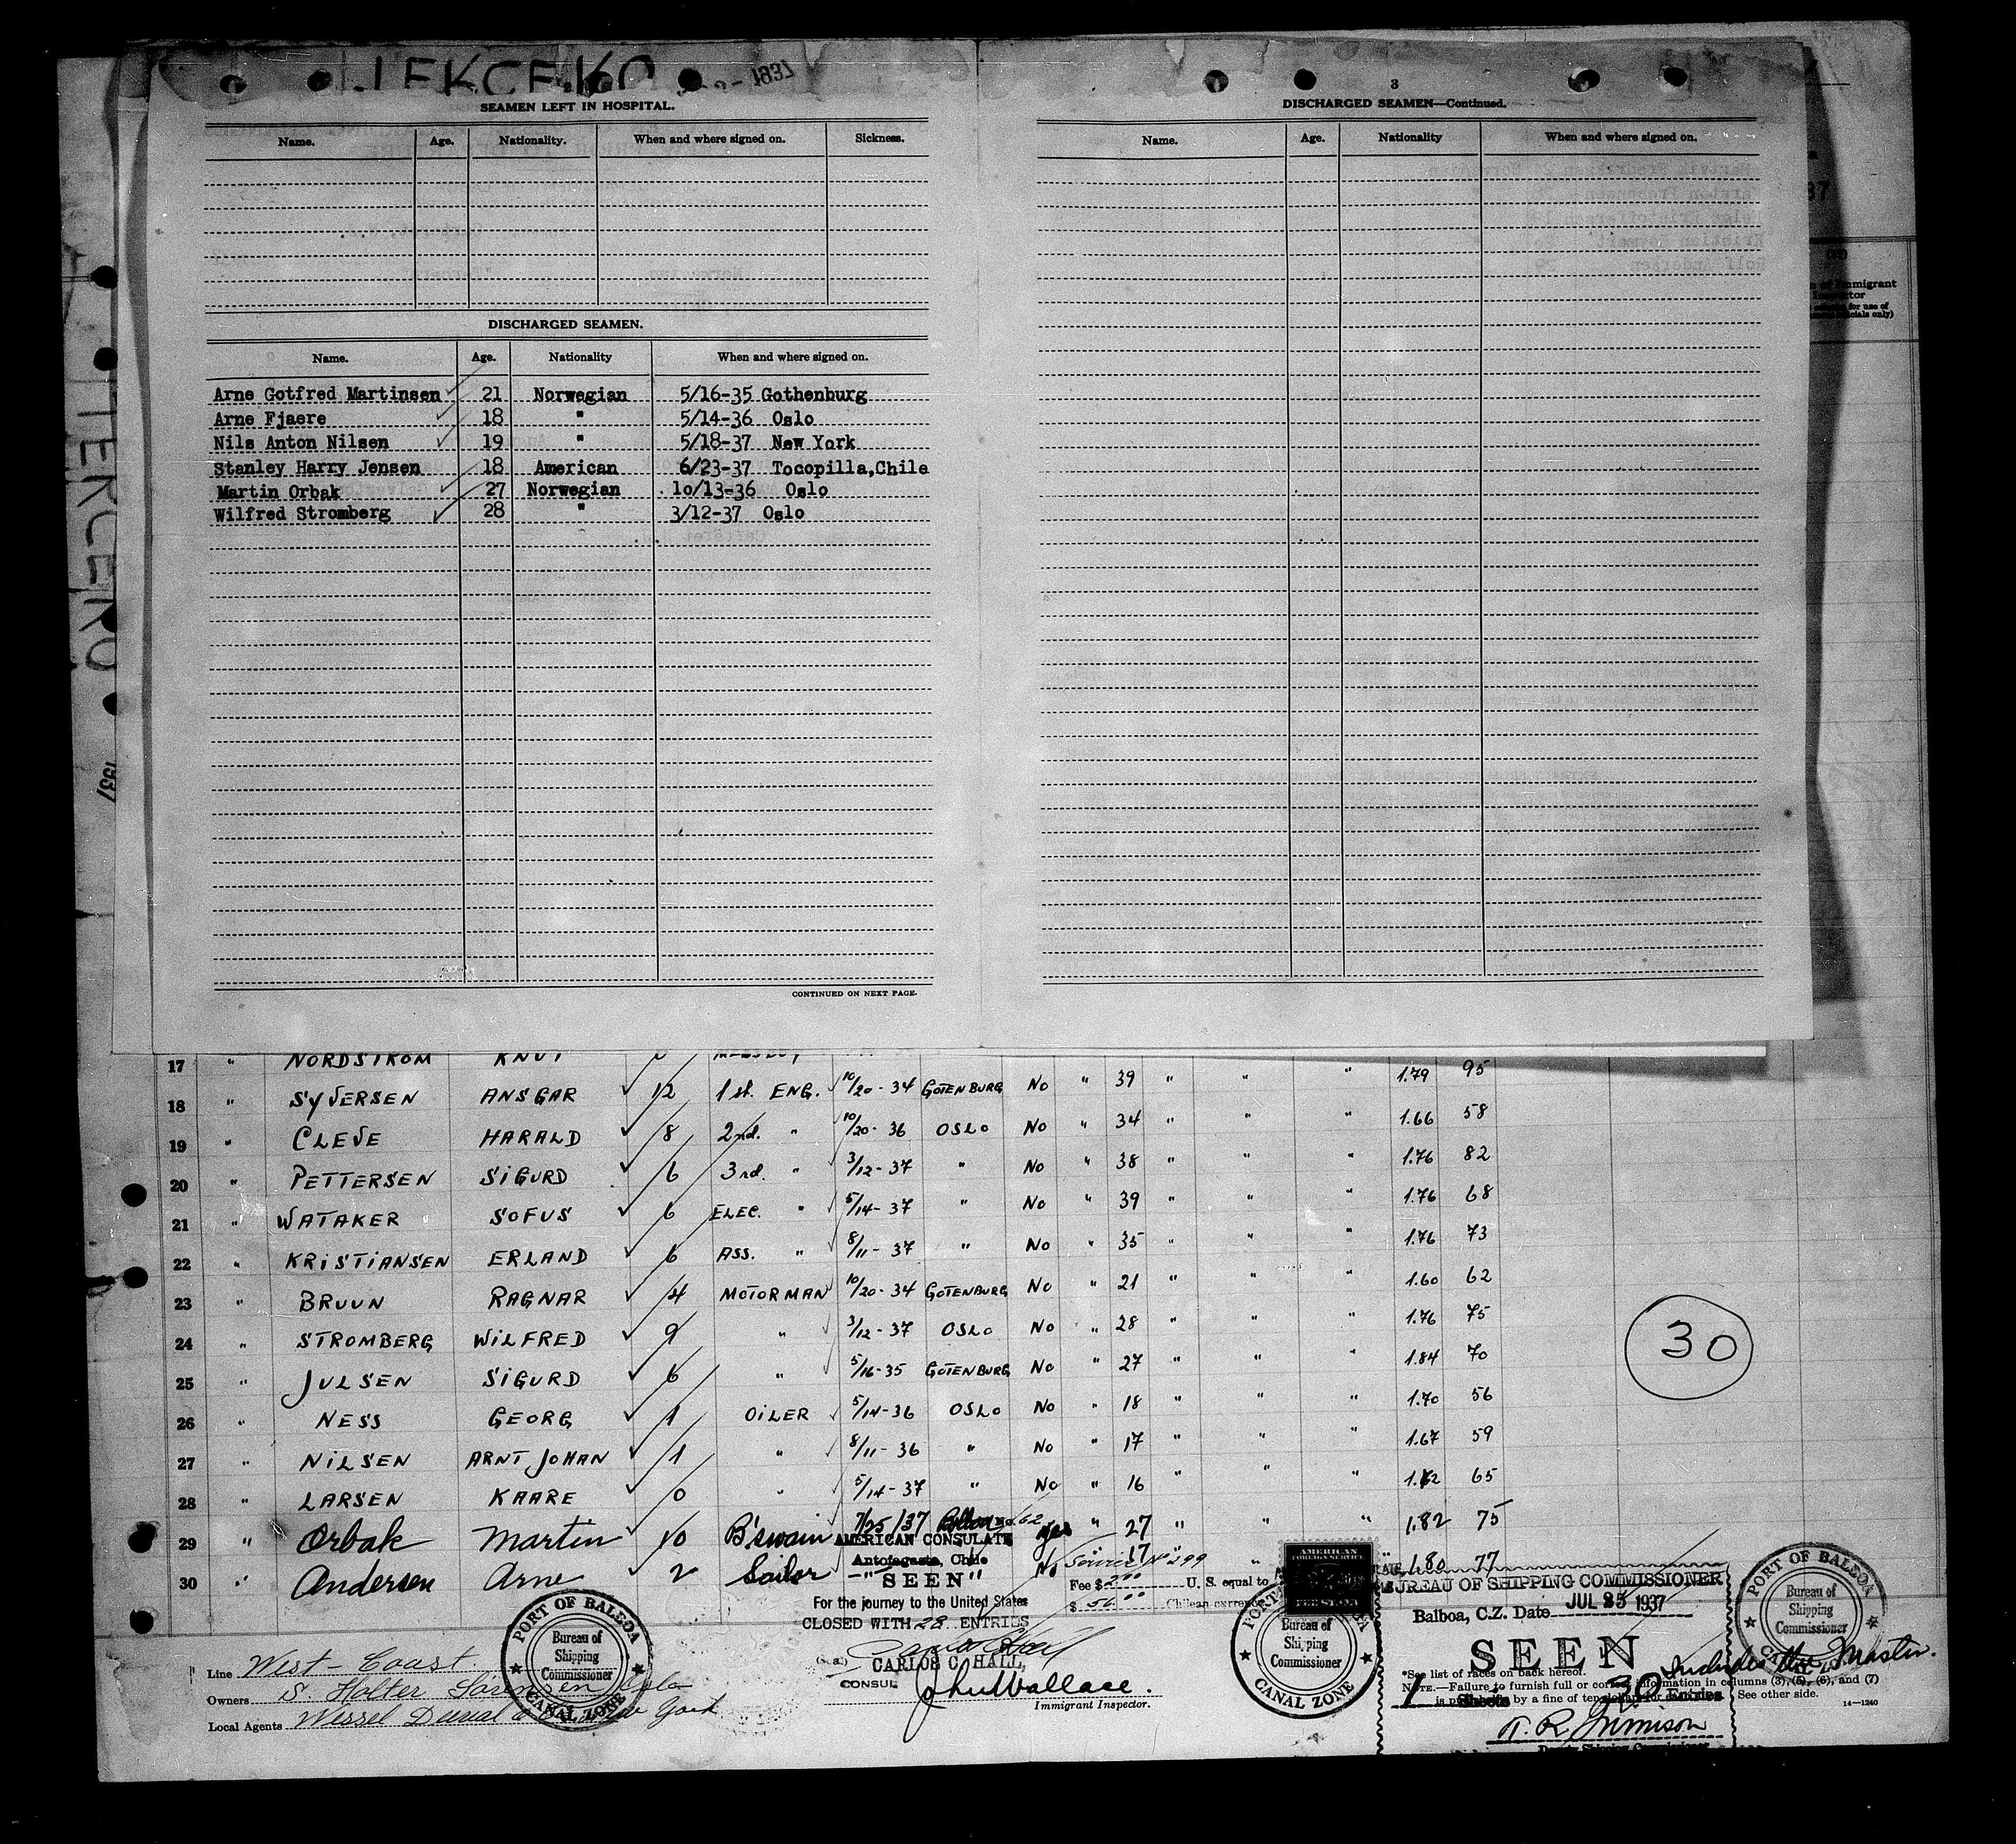 TERCERO
1937
SEAMEN LEFT IN HOSPITAL.
Name. Age. Nationality. When and where signed on. Sickness.
DISCHARGED SEAMEN.
Name. Age. Nationality When and where signed on.
Arne Gotfred Martinsen 21 Norwegian 5/16-35 Gothenburg
Arne Fjaere 18 " 5/14-36 Oslo
Nils Anton Nilsen 19 " 5/18-37 New York
Stanley Harry Jensen 18 American 6/23-37 Tocopilla,Chile
Martin Orbak 27 Norwegian 10/13-36 Oslo
Wilfred Stromberg 28 " 3/12-37 Oslo
CONTINUED ON NEXT PAGE.
3
DISCHARGED SEAMEN—Continued.
Name. Age. Nationality When and where signed on.
17 " NORDSTROM KNUT
18 " SYVERSEN ANSGAR ✓ 12 1st. ENG. 10/20-34 GOTENBURG No " 39 " " " 1.79 95
19 " CLEVE HARALD ✓ 8 2nd. " 10/20-36 OSLO No " 34 " " " 1.66 58
20 " PETTERSEN SIGURD ✓ 6 3rd. " 3/12-37 " No " 38 " " " 1.76 82
21 " WATAKER SOFUS ✓ 6 ELEC. " 5/14-37 " No " 39 " " " 1.76 68
22 " KRISTIANSEN ERLAND ✓ 6 ASS. " 8/11-37 " No " 35 " " " 1.76 73
23 " BRUUN RAGNAR ✓ 4 MOTORMAN 10/20-34 GOTENBURG No " 21 " " " 1.60 62
24 " STROMBERG WILFRED ✓ 9 " 3/12-37 OSLO No " 28 " " " 1.76 75
25 " JULSEN SIGURD ✓ 6 " 5/16-35 GOTENBURG No " 27 " " " 1.84 70
26 " NESS GEORG ✓ 1 OILER 5/14-36 OSLO No " 18 " " " 1.70 56
27 " NILSEN ARNT JOHAN ✓ 1 " 8/11-36 " No " 17 " " " 1.67 59
28 " LARSEN KAARE ✓ 0 " 5/14-37 " No " 16 " " " 1.62 65
29 " Orbak Martin ✓ 10 B'swain 7/25/37 Balboa yes " 27 " " " 1.82 75
30 " Andersen Arne ✓ 2 Sailor No " 17 " 1.80 77
30
AMERICAN CONSULATE
Antofagasta, Chile
"SEEN"
For the journey to the United States
CLOSED WITH 28 ENTRIES
CARLOS C. HALL,
CONSUL
Service No. 299
Fee $2.00 U. S. equal to
$ 56.00 Chilean currency
AMERICAN
FOREIGN SERVICE
John Wallace.
Immigrant Inspector.
Line West-Coast
Owners S. Holter Sørensen Oslo
Local Agents Wessel Duval & Co New York
PORT OF BALBOA
Bureau of
Shipping
Commissioner
CANAL ZONE
Bureau of
Shipping
Commissioner
CANAL ZONE
BUREAU OF SHIPPING COMMISSIONER
Balboa, C.Z. Date JUL 25 1937
SEEN
1 Sheets 30 Entries
Includes the Master.
Deputy Shipping Commissioner
PORT OF BALBOA
Bureau of
Shipping
Commissioner
*See list of races on back hereof.
NOTE.—Failure to furnish full or correct information in columns (3), (5), (6), and (7)
See other side.
14—1240